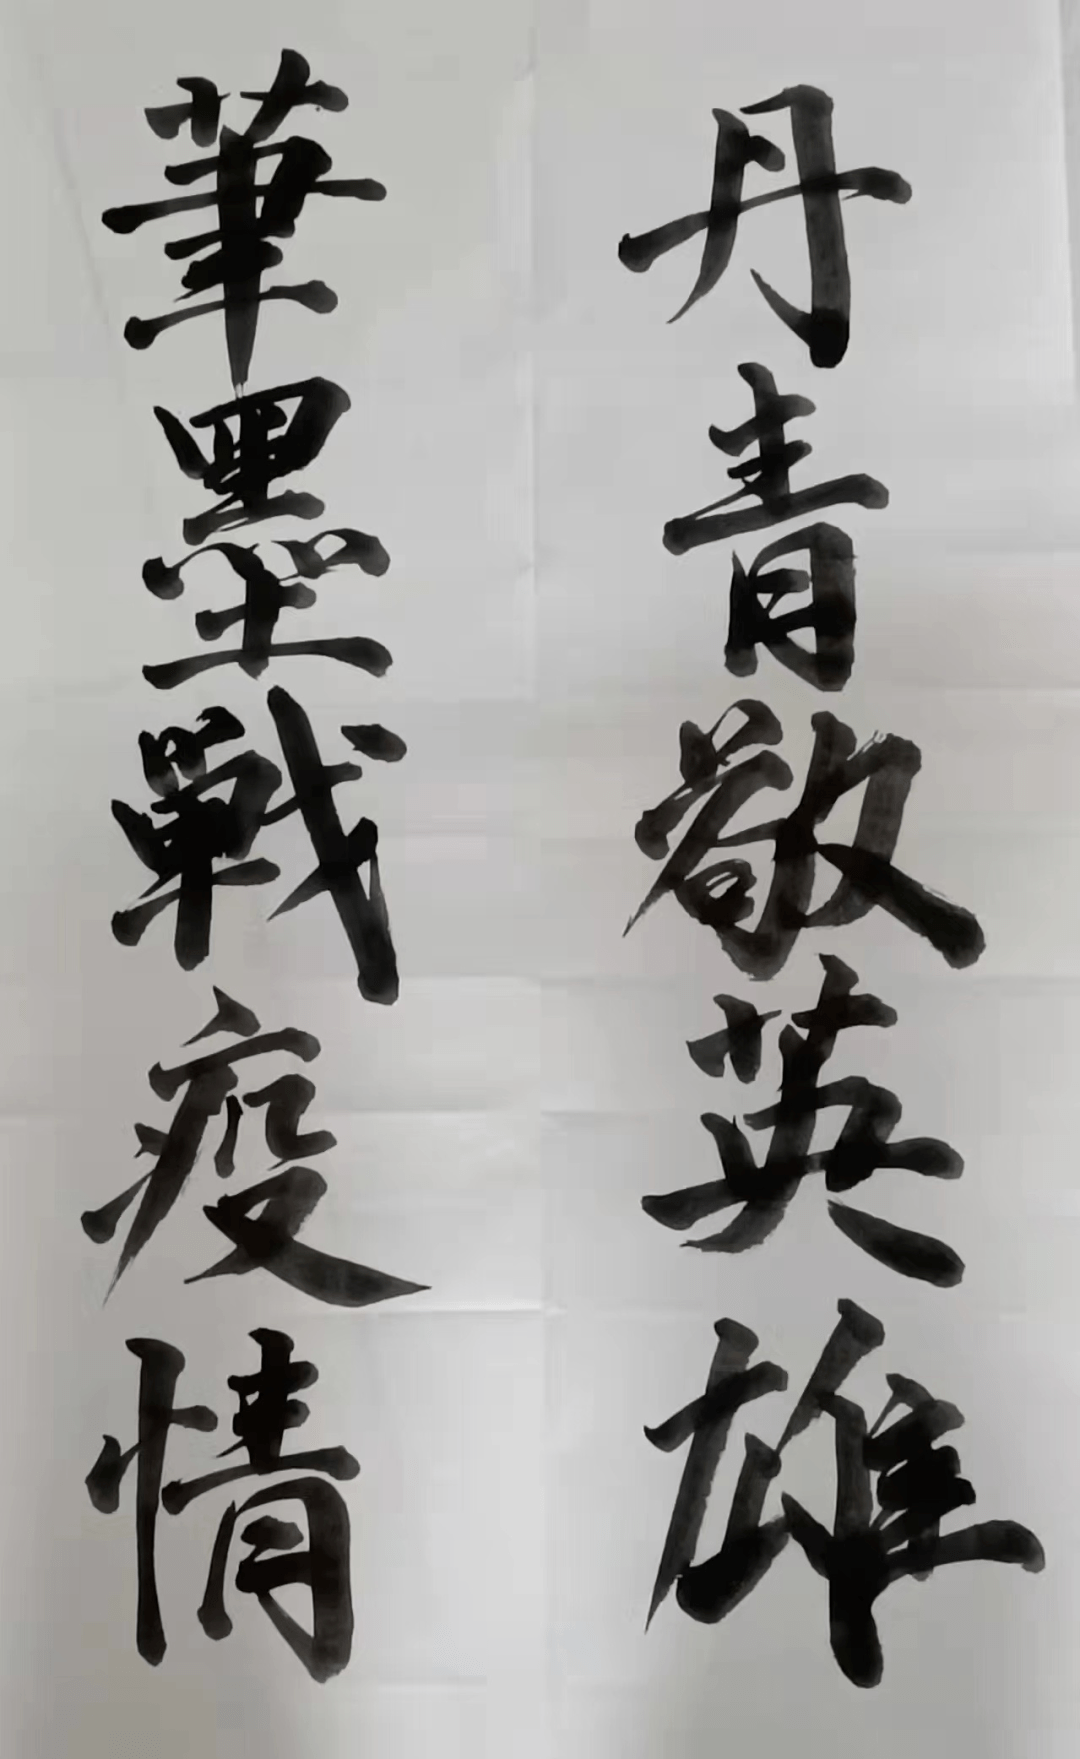 丹青敬英雄
筆墨戰疫情